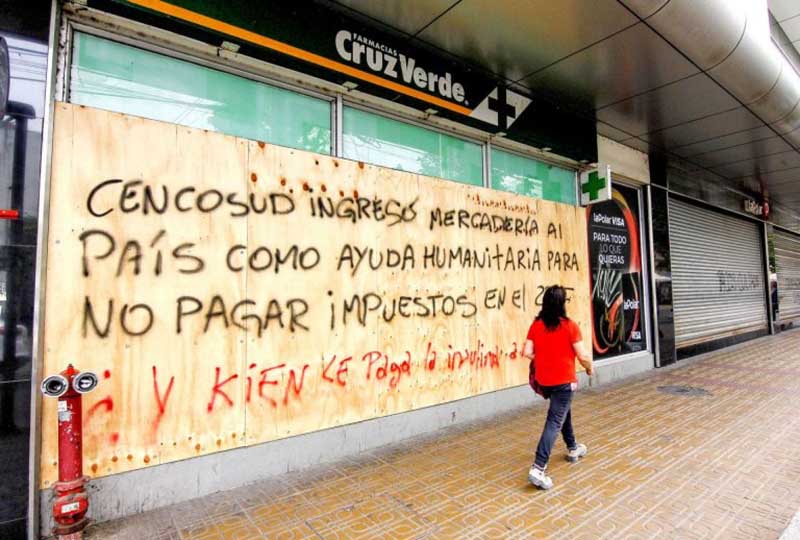 FARMACIAS
CruzVerde
CENCOSUD iNGRESÓ MERCADERÍA Al
PAÍS COMO AYUDA HUMANitARiA PARA
NO PAGAR iMPUESTOS EN El
¿Y KiEN LE Paga la insulina a
laPolar VISA
PARA TODO
LO QUE
QUIERAS
laPolar
VISA
laPolar